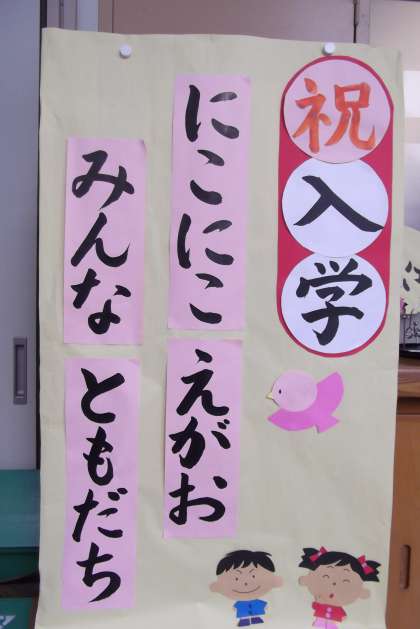 祝入学
にこにこ えがお
みんな ともだち